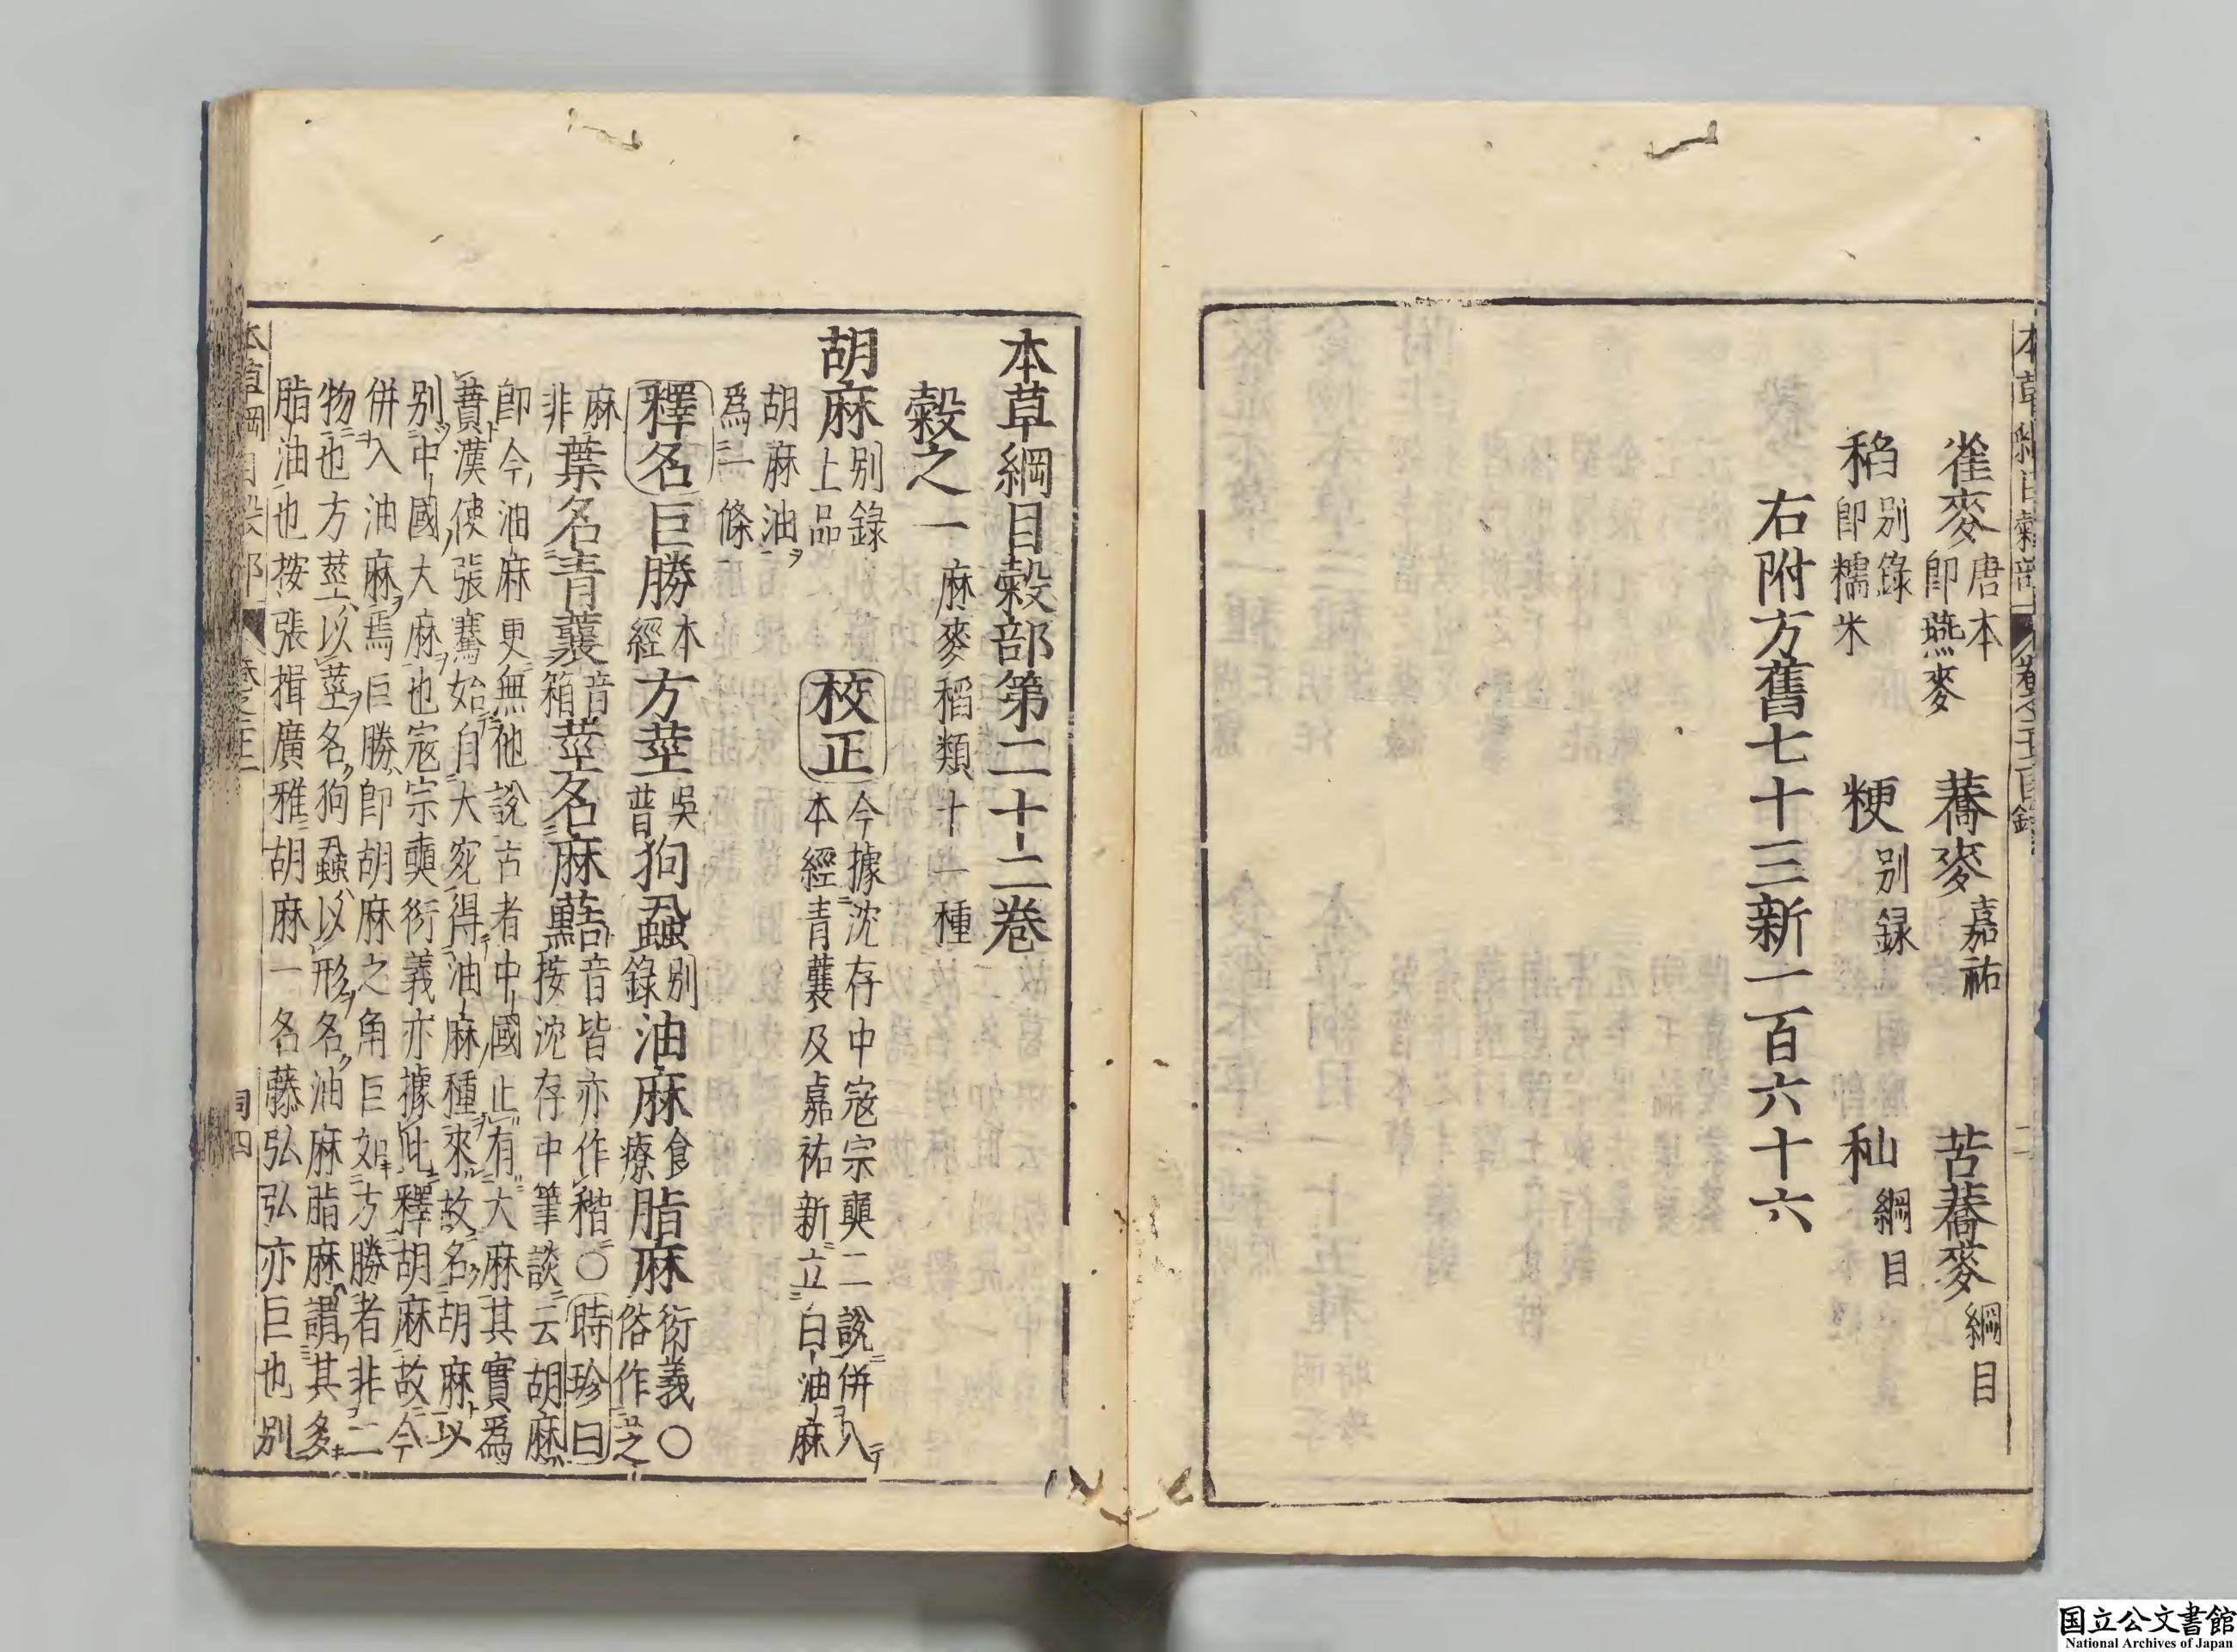 雀麥 唐本 即燕麥 蕎麥 嘉祐 苦蕎麥 綱目
稻 別錄 即糯米 粳 別録 秈 綱目
右附方舊七十三新一百六十六
本草綱目穀部第二十二卷
穀之一 麻麥稻類十二種
胡麻 別錄上品 校正 今據沈存中寇宗奭二說併入
本經青蘘及嘉祐新立白油麻
胡麻油
爲一條
釋名 巨勝 本經 方莖 吳普 狗蝨 別錄 油麻 食療 脂麻 衍義○
俗作芝
麻非 葉名青蘘 音箱 莖名麻䕸 音皆亦作稭○時珍曰
按沈存中筆談云胡麻
即今油麻更無他說古者中國止有大麻其實爲
蕡漢使張騫始自大宛得油麻種來故名胡麻以
別中國大麻也寇宗奭衍義亦據此釋胡麻故今
併入油麻焉巨勝即胡麻之角巨如方勝者非二
物也方莖以莖名狗蝨以形名油麻脂麻謂其多
脂油也按張揖廣雅胡麻一名藤弘弘亦巨也別
国立公文書館
National Archives of Japan